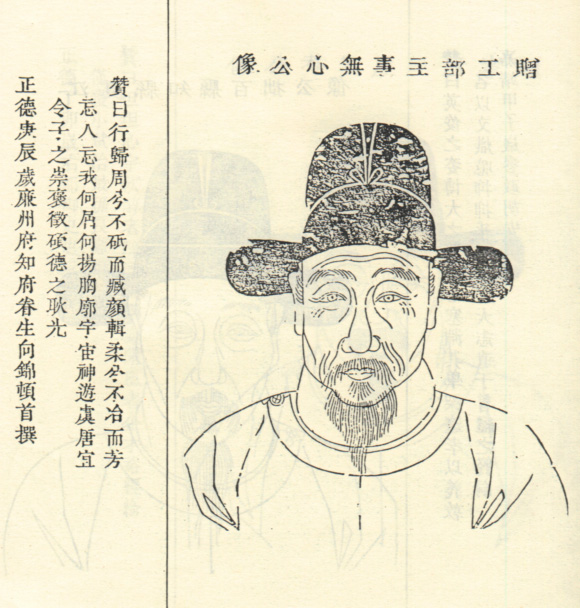 贈工部主事無心公像
贊曰行歸周兮不砥而臧顏輯柔兮不冶而芳
忘人忘我何屑何揚胸廓宇宙神遊虞唐宜
令子之崇褒徵碩德之耿光
正德庚辰歲廉州府知府眷生向錦頓首撰